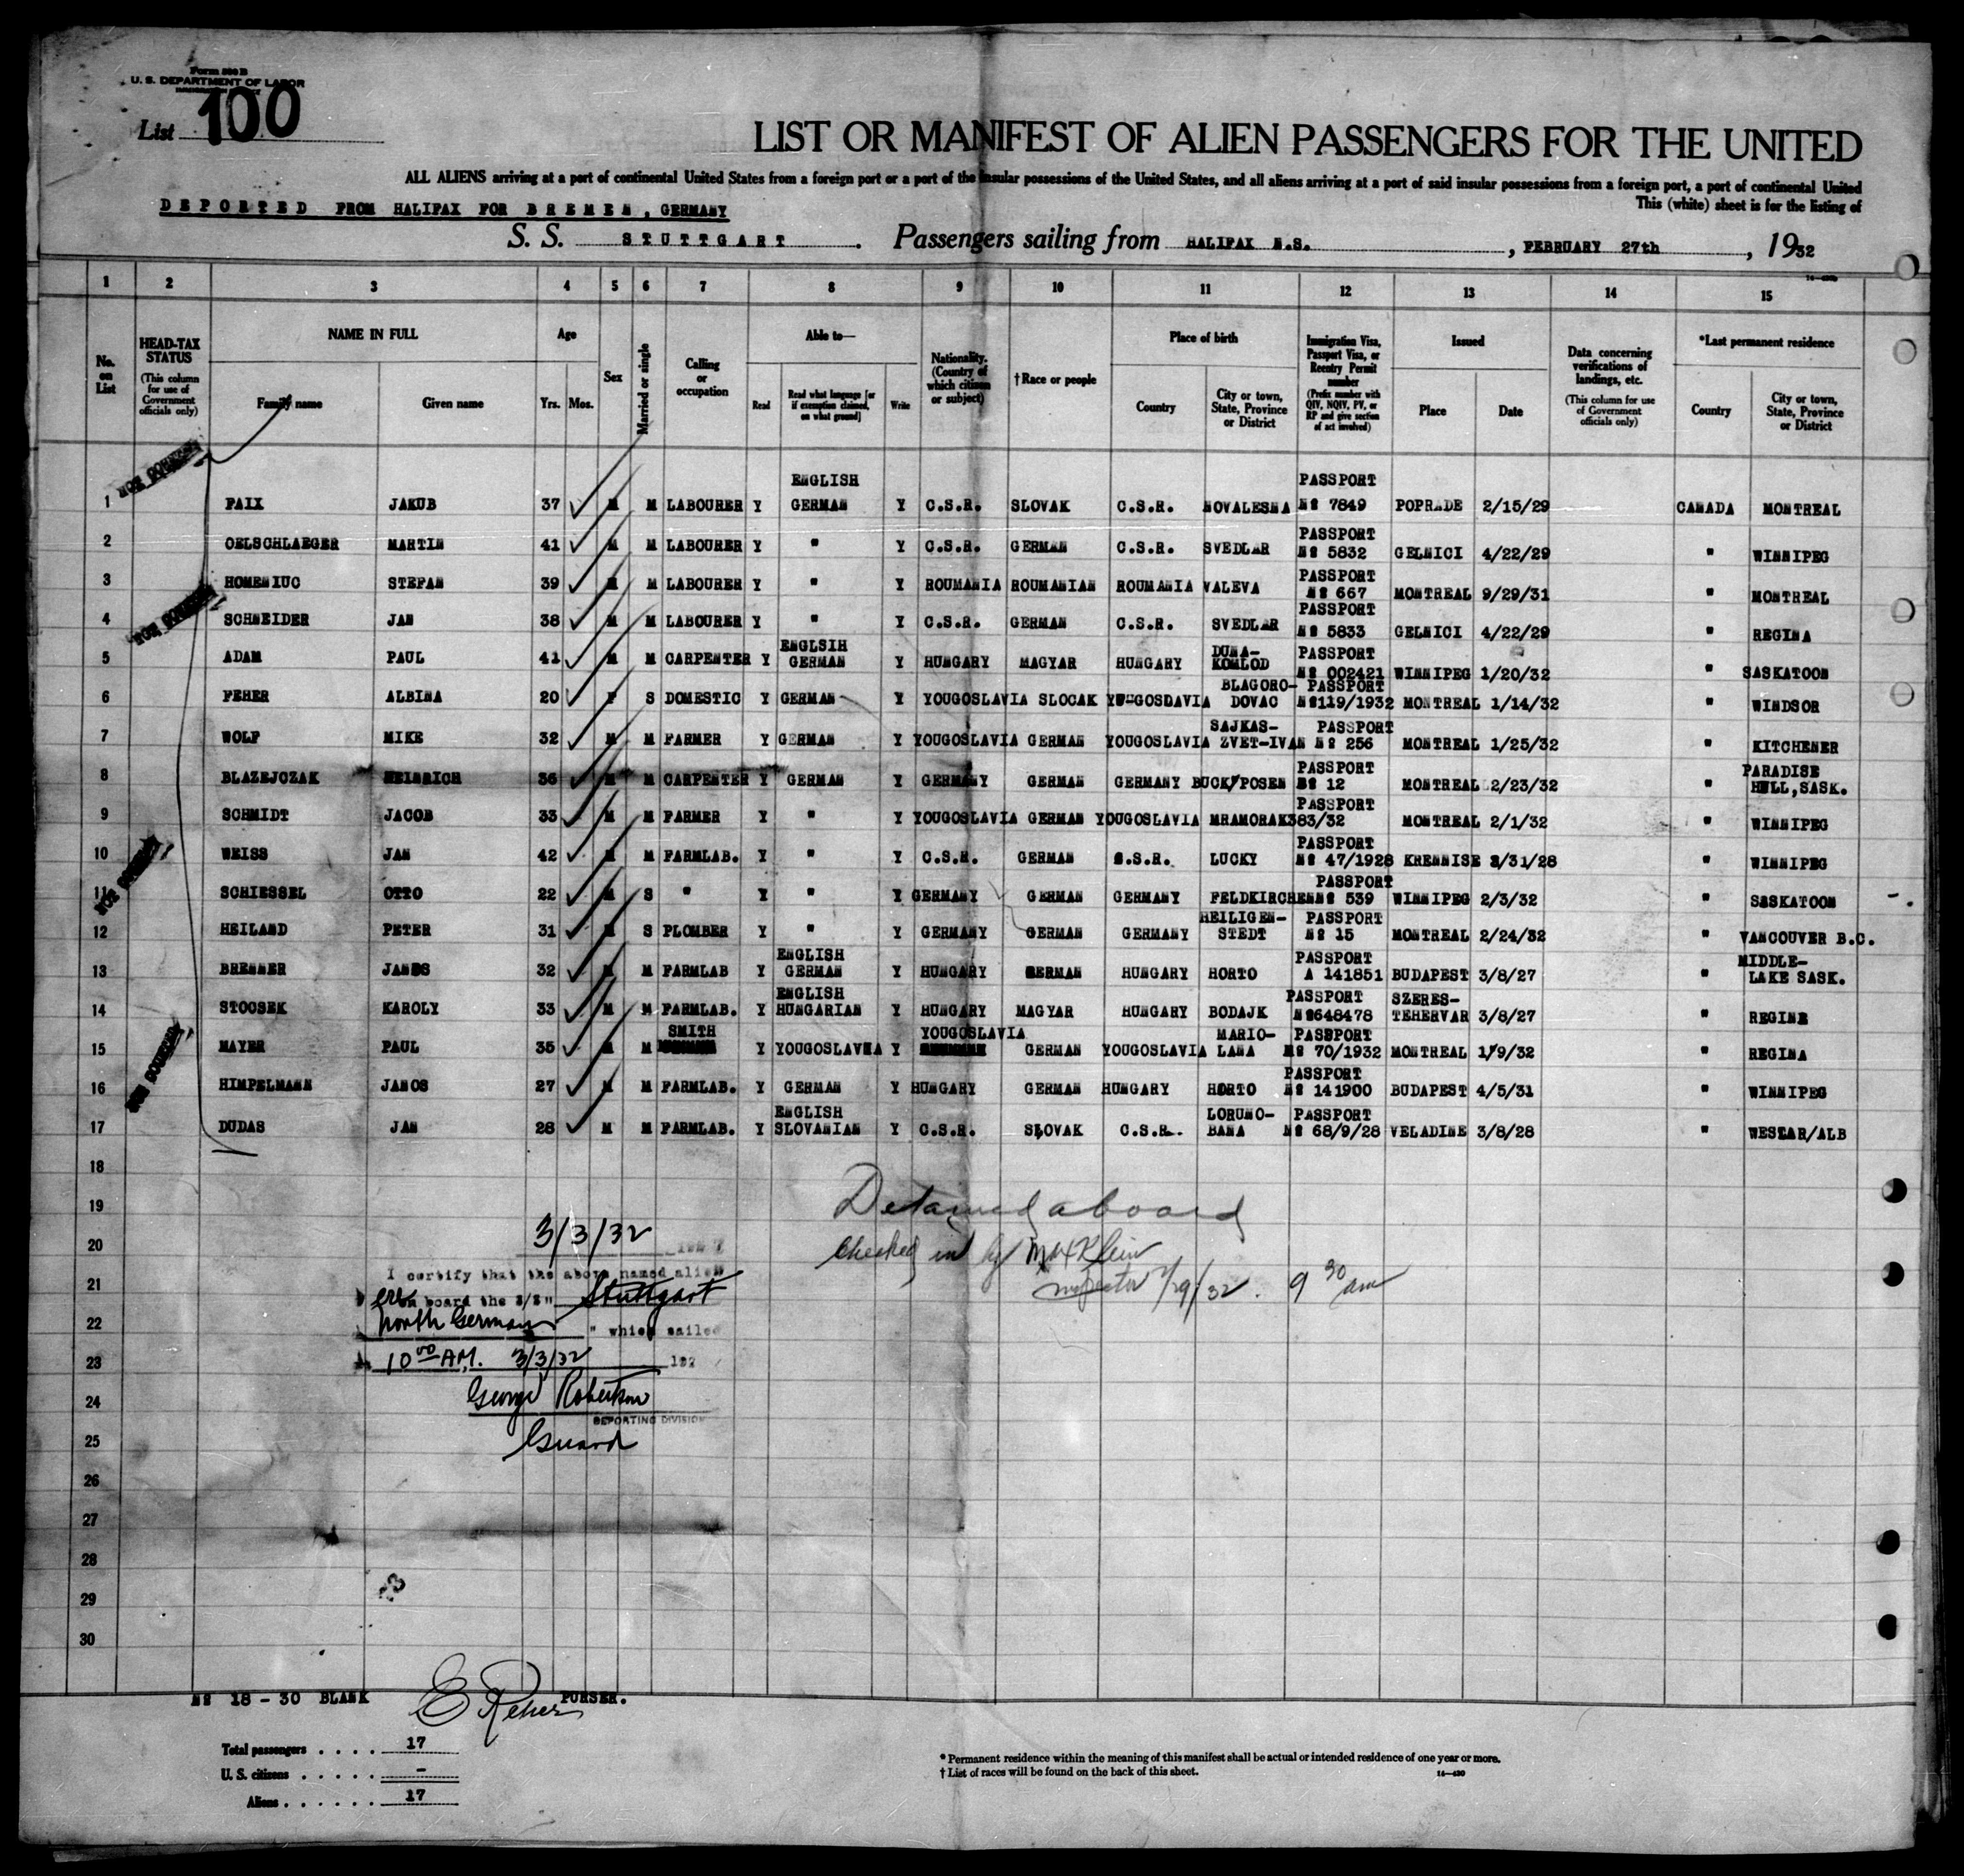 Form 500 B
U. S. DEPARTMENT OF LABOR
List 100
LIST OR MANIFEST OF ALIEN PASSENGERS FOR THE UNITED
ALL ALIENS arriving at a port of continental United States from a foreign port or a port of the insular possessions of the United States, and all aliens arriving at a port of said insular possessions from a foreign port, a port of continental United
This (white) sheet is for the listing of
DEPORTED FROM HALIFAX FOR BREMEN, GERMANY
S. S. STUTTGART . Passengers sailing from HALIFAX N.S. , FEBRUARY 27th , 1932
1 2 3 4 5 6 7 8 9 10 11 12 13 14 15
No. on List
HEAD-TAX STATUS (This column for use of Government officials only)
NAME IN FULL
Family name Given name
Age
Yrs. Mos.
Sex
Married or single
Calling or occupation
Able to—
Read
Read what language [or if exemption claimed, on what ground]
Write
Nationality. (Country of which citizen or subject)
†Race or people
Place of birth
Country
City or town, State, Province or District
Immigration Visa, Passport Visa, or Reentry Permit number (Prefix number with QIV, NQIV, PV, or RP and give section of act involved)
Issued
Place Date
Data concerning verifications of landings, etc. (This column for use of Government officials only)
*Last permanent residence
Country
City or town, State, Province or District
ENGLISH PASSPORT
1 PAIX JAKUB 37 M M LABOURER Y GERMAN Y C.S.R. SLOVAK C.S.R. NOVALESNA Nº 7849 POPRADE 2/15/29 CANADA MONTREAL
PASSPORT
2 OELSCHLAEGER MARTIN 41 M M LABOURER Y " Y C.S.R. GERMAN C.S.R. SVEDLAR Nº 5832 GELNICI 4/22/29 " WINNIPEG
PASSPORT
3 HOMENIUC STEFAN 39 M M LABOURER Y " Y ROUMANIA ROUMANIAN ROUMANIA VALEVA Nº 667 MONTREAL 9/29/31 " MONTREAL
PASSPORT
4 SCHNEIDER JAN 38 M M LABOURER Y " Y C.S.R. GERMAN C.S.R. SVEDLAR Nº 5833 GELNICI 4/22/29 " REGINA
ENGLSIH DUNA- PASSPORT
5 ADAM PAUL 41 M M CARPENTER Y GERMAN Y HUNGARY MAGYAR HUNGARY KOMLOD Nº 002421 WINNIPEG 1/20/32 " SASKATOON
BLAGORO- PASSPORT
6 FEHER ALBINA 20 F S DOMESTIC Y GERMAN Y YOUGOSLAVIA SLOCAK YU-GOSDAVIA DOVAC Nº119/1932 MONTREAL 1/14/32 " WINDSOR
SAJKAS- PASSPORT
7 WOLF MIKE 32 M M FARMER Y GERMAN Y YOUGOSLAVIA GERMAN YOUGOSLAVIA ZVET-IVAN Nº 256 MONTREAL 1/25/32 " KITCHENER
PASSPORT PARADISE
8 BLAZEJCZAK HEINRICH 36 M M CARPENTER Y GERMAN Y GERMANY GERMAN GERMANY BUCK/POSEN Nº 12 MONTREAL 2/23/32 " HILL, SASK.
PASSPORT
9 SCHMIDT JACOB 33 M M FARMER Y " Y YOUGOSLAVIA GERMAN YOUGOSLAVIA MRAMORAK 383/32 MONTREAL 2/1/32 " WINNIPEG
PASSPORT
10 WEISS JAN 42 M M FARMLAB. Y " Y C.S.R. GERMAN C.S.R. LUCKY Nº 47/1928 KREMNISE 3/31/28 " WINNIPEG
PASSPORT
11 SCHIESSEL OTTO 22 M S " Y " Y GERMANY GERMAN GERMANY FELDKIRCHEN Nº 539 WINNIPEG 2/3/32 " SASKATOON
HEILIGEN- PASSPORT
12 HEILAND PETER 31 M S PLOMBER Y " Y GERMANY GERMAN GERMANY STEDT Nº 15 MONTREAL 2/24/32 " VANCOUVER B.C.
ENGLISH PASSPORT MIDDLE-
13 BRENNER JANOS 32 M M FARMLAB Y GERMAN Y HUNGARY GERMAN HUNGARY HORTO A 141851 BUDAPEST 3/8/27 " LAKE SASK.
ENGLISH PASSPORT SZERES-
14 STOCSEK KAROLY 33 M M FARMLAB. Y HUNGARIAN Y HUNGARY MAGYAR HUNGARY BODAJK Nº648478 TEHERVAR 3/8/27 " REGINE
SMITH YOUGOSLAVIA MARIO- PASSPORT
15 MAYER PAUL 35 M M Y YOUGOSLAVNA Y GERMAN YOUGOSLAVIA LANA Nº 70/1932 MONTREAL 1/9/32 " REGINA
PASSPORT
16 HIMPELMANN JANOS 27 M M FARMLAB. Y GERMAN Y HUNGARY GERMAN HUNGARY HORTO Nº 141900 BUDAPEST 4/5/31 " WINNIPEG
ENGLISH LORUNO- PASSPORT
17 DUDAS JAN 28 M M FARMLAB. Y SLOVANIAN Y C.S.R. SLOVAK C.S.R. BANA Nº 68/9/28 VELADINE 3/8/28 " WESTAR/ALB
18
19
20
21
22
23
24
25
26
27
28
29
30
Detained aboard
Checked in by Max Klein
Inspector 2/29/32. 9 30 am
3/3/32
I certify that the above named alien
were on board the S/S" Stuttgart
North German " which sailed
10 00 AM. 3/3/32 192
George Robertson
DEPORTING DIVISION
Guard
23
Nº 18 - 30 BLANK E Reher PURSER.
Total passengers . . . . 17
U. S. citizens . . . . . –
Aliens . . . . . . 17
* Permanent residence within the meaning of this manifest shall be actual or intended residence of one year or more.
† List of races will be found on the back of this sheet.